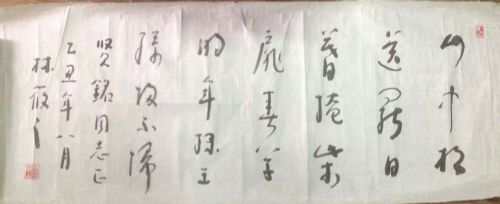 山中相
送罷日
暮掩柴
扉春草
明年綠王
孫歸不歸
贤銘同志正
乙丑年八月
林筱之